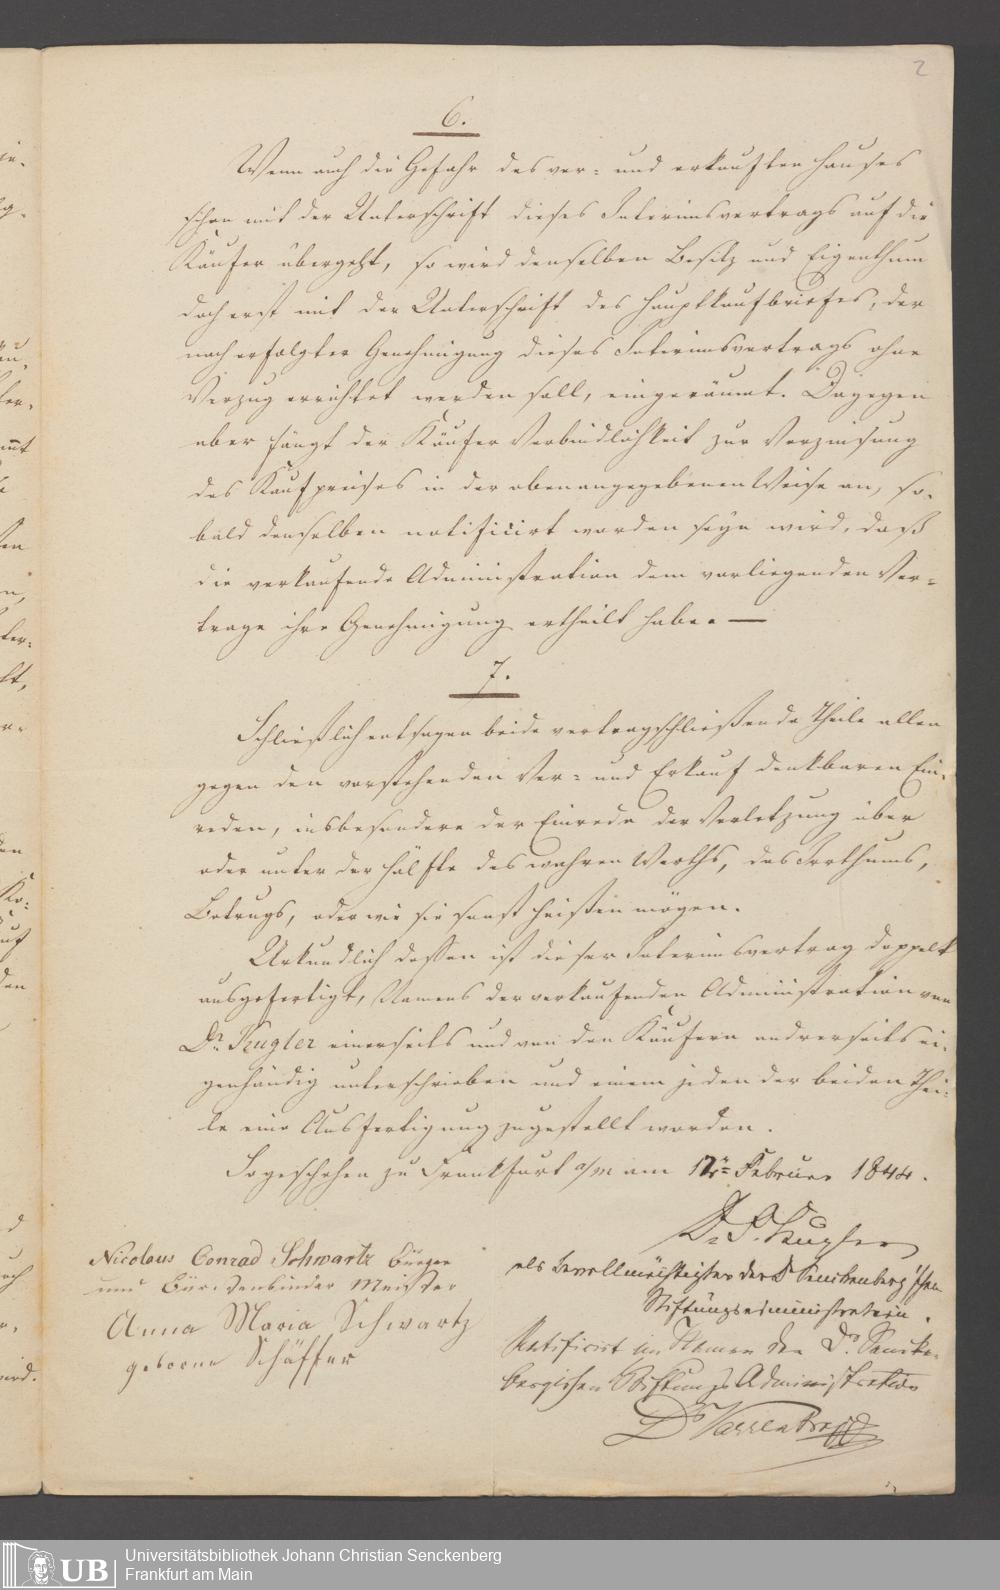 2
6.
Wenn auch die Gefahr des ver- und erkauften Hauses
schon mit der Unterschrift dieses Interimsvertrags auf die
Käufer übergeht, so wird denselben Besitz und Eigenthum
doch erst mit der Unterschrift des Hauptkaufbriefes, der
nach erfolgter Genehmigung dieses Interimsvertrags ohne
Verzug errichtet werden soll, eingeräumt. Dagegen
aber fängt der Käufer Verbindlichkeit zur Verzinsung
des Kaufpreises in der obenangegebenen Weise an, so-
bald denselben notificirt worden seyn wird, daß
die verkaufende Administration dem vorliegenden Ver-
trage ihre Genehmigung ertheilt habe. —
7.
Schließlich entsagen beide vertragschließende Theile allen
gegen den vorstehenden Ver- und Erkauf denkbaren Ein-
reden, insbesondere der Einrede der Verletzung über
oder unter der Hälfte des wahren Werths, des Irrthums,
Betrugs, oder wie sie sonst heißen mögen.
Urkundlich dessen ist dieser Interimsvertrag doppelt
ausgefertigt, Namens der verkaufenden Administration von
Dr. Kugler einerseits und von den Käufern andrerseits ei-
genhändig unterschrieben und einem jeden der beiden Thei-
le eine Ausfertigung zugestellt worden.
So geschehen zu Frankfurt a/m am 12n Februar 1844.
Dr. Kugler
als Bevollmächtigter der Dr Senckenberg'schen
Stiftungsadministration.
Nicolaus Conrad Schwartz Bürger
und Bürstenbinder Meister
Anna Maria Schwartz
geborne Schäffer
Ratificirt im Namen der Dr. Sencken-
bergischen Stiftungs Administration
Dr Varrentrapp
UB
Universitätsbibliothek Johann Christian Senckenberg
Frankfurt am Main